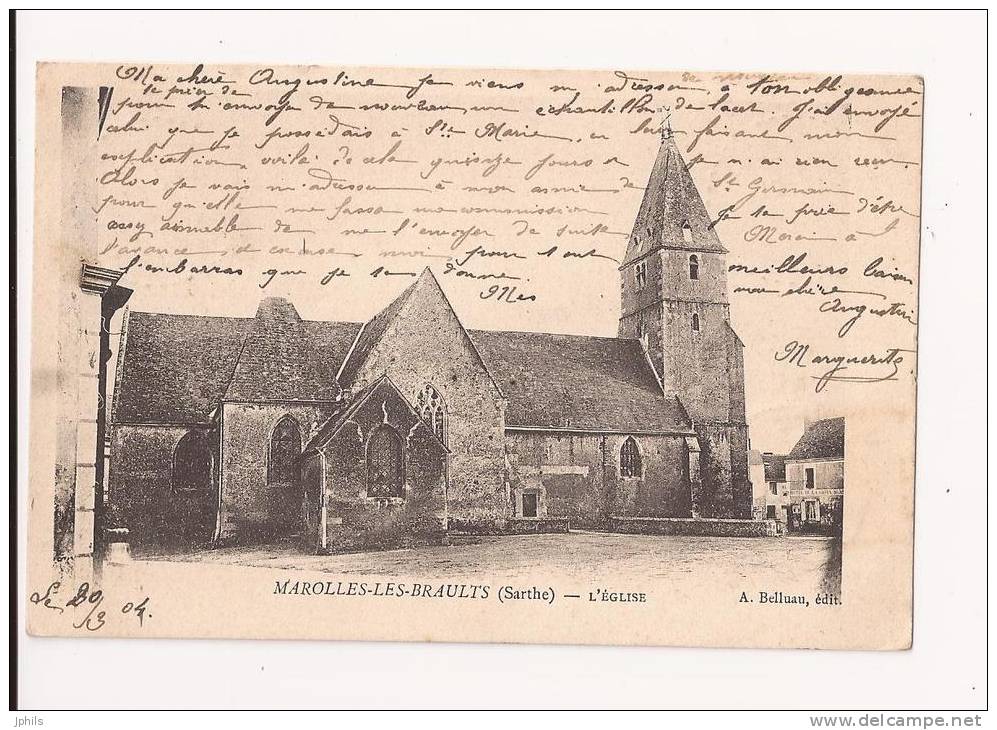 Ma chère Augustine je viens m'adresser à ton obligeance
te prier de
pour m'envoyer de nouveau un échantillon de lacet. J'ai envoyé
celui que je possédais à Ste Marie, en lui faisant mon
explication, voilà de cela quinze jours je n'ai rien reçu
Alors je vais m'adresser à mon amie de St Germain
pour qu'elle me fasse ma commission je te prie d'être
assez aimable de me l'envoyer de suite Merci à
l'avance et excuse moi pour tout
l'embarras que je te donne meilleurs baisers
Mes ma chère
Augustine
Marguerite
Le 20/3 04.
MAROLLES-LES-BRAULTS (Sarthe) — L'ÉGLISE
A. Belluau, édit.
jphils
www.delcampe.net